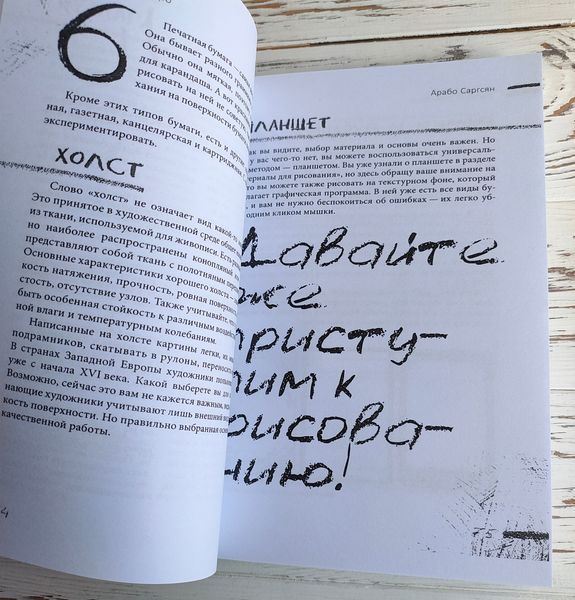 6
Печатная бумага — сам
Она бывает разного грам
Обычно она мягкая,
для карандаша. А вот
рисовать на ней не сове
хания на поверхности бу
Кроме этих типов бумаги, есть и
ная, газетная, канцелярская и картридж
экспериментировать.
ХОЛСТ
Слово «холст» не означает вид какой-т
Это принятое в художественной среде обще
из ткани, используемой для живописи. Есть
но наиболее распространены конопляный
представляют собой ткань с полотняным перепл
Основные характеристики хорошего холста —
кость натяжения, прочность, ровная поверхн
стость, отсутствие узлов. Также учитывайте,
быть особенная стойкость к различным воздей
ной влаги и температурным колебаниям.
Написанные на холсте картины легки, их
подрамников, скатывать в рулоны, переноси
В странах Западной Европы художники поль
уже с начала XVI века. Какой выберете вы для
Возможно, сейчас это вам не кажется важным,
нающие художники учитывают лишь внешний
кость поверхности. Но правильно выбранная осн
качественной работы.
4
Арабо Саргсян
ПЛАНШЕТ
ак вы видите, выбор материала и основы очень важен. Но
у вас чего-то нет, вы можете воспользоваться универсаль-
методом — планшетом. Вы уже узнали о планшете в разделе
ериалы для рисования», но здесь обращу ваше внимание на
о вы можете также рисовать на текстурном фоне, который
лагает графическая программа. В ней уже есть все виды бу-
и вам не нужно беспокоиться об ошибках — их легко уб-
одним кликом мышки.
Давайте
же
присту-
пим к
рисова-
нию!
75